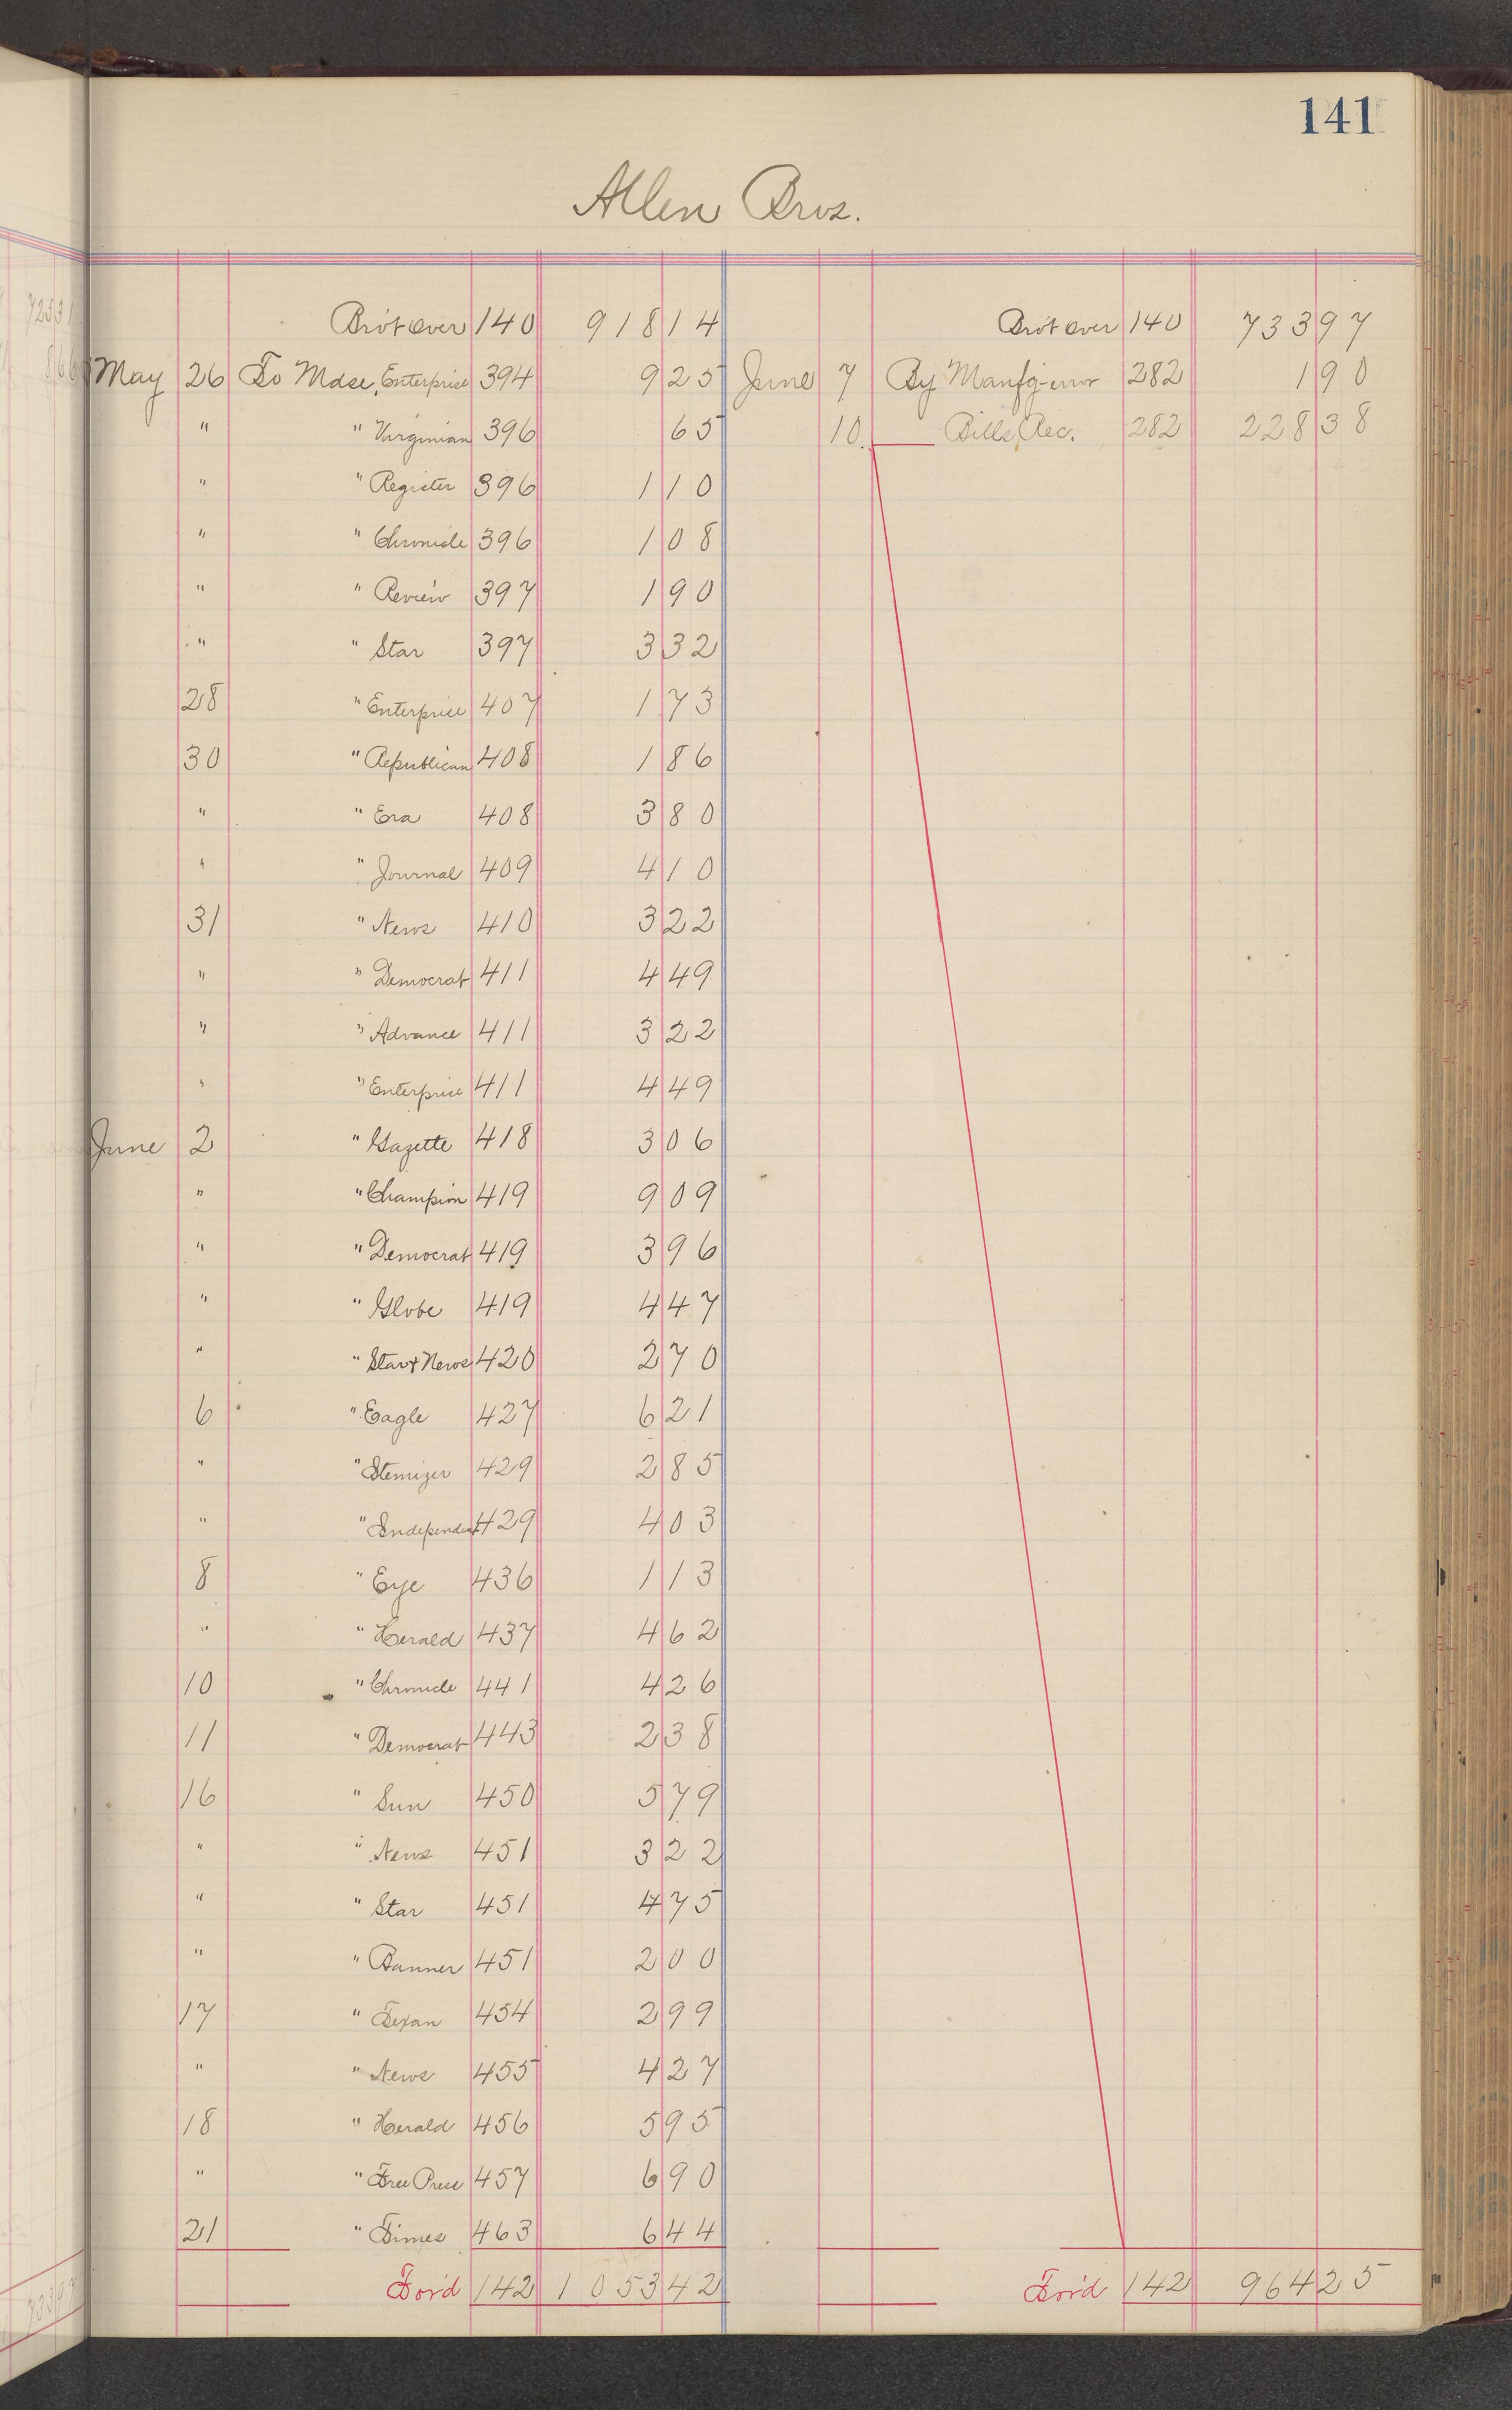 141
Allen Bros.
Bro't over 140 918 14 Bro't over 140 733 97
May 26 To Mdse, Enterprise 394 9 25 June 7 By Manfg-error 282 1 90
" " Virginian 396 65 10 Bills Rec. 282 228 38
" " Register 396 1 10
" " Chronicle 396 1 08
" " Review 397 1 90
" " Star 397 3 32
28 " Enterprise 407 1 73
30 " Republican 408 1 86
" " Era 408 3 80
" " Journal 409 4 10
31 " News 410 3 22
" " Democrat 411 4 49
" " Advance 411 3 22
" " Enterprise 411 4 49
June 2 " Gazette 418 3 06
" " Champion 419 9 09
" " Democrat 419 3 96
" " Globe 419 4 47
" " Star & News 420 2 70
6 " Eagle 427 6 21
" " Itemizer 429 2 85
" " Independent 429 4 03
8 " Eye 436 1 13
" " Herald 437 4 62
10 " Chronicle 441 4 26
11 " Democrat 443 2 38
16 " Sun 450 5 79
" " News 451 3 22
" " Star 451 4 75
" " Banner 451 2 00
17 " Texan 454 2 99
" " News 455 4 27
18 " Herald 456 5 95
" " Free Press 457 6 90
21 " Times 463 6 44
For'd 142 1053 42 For'd 142 964 25